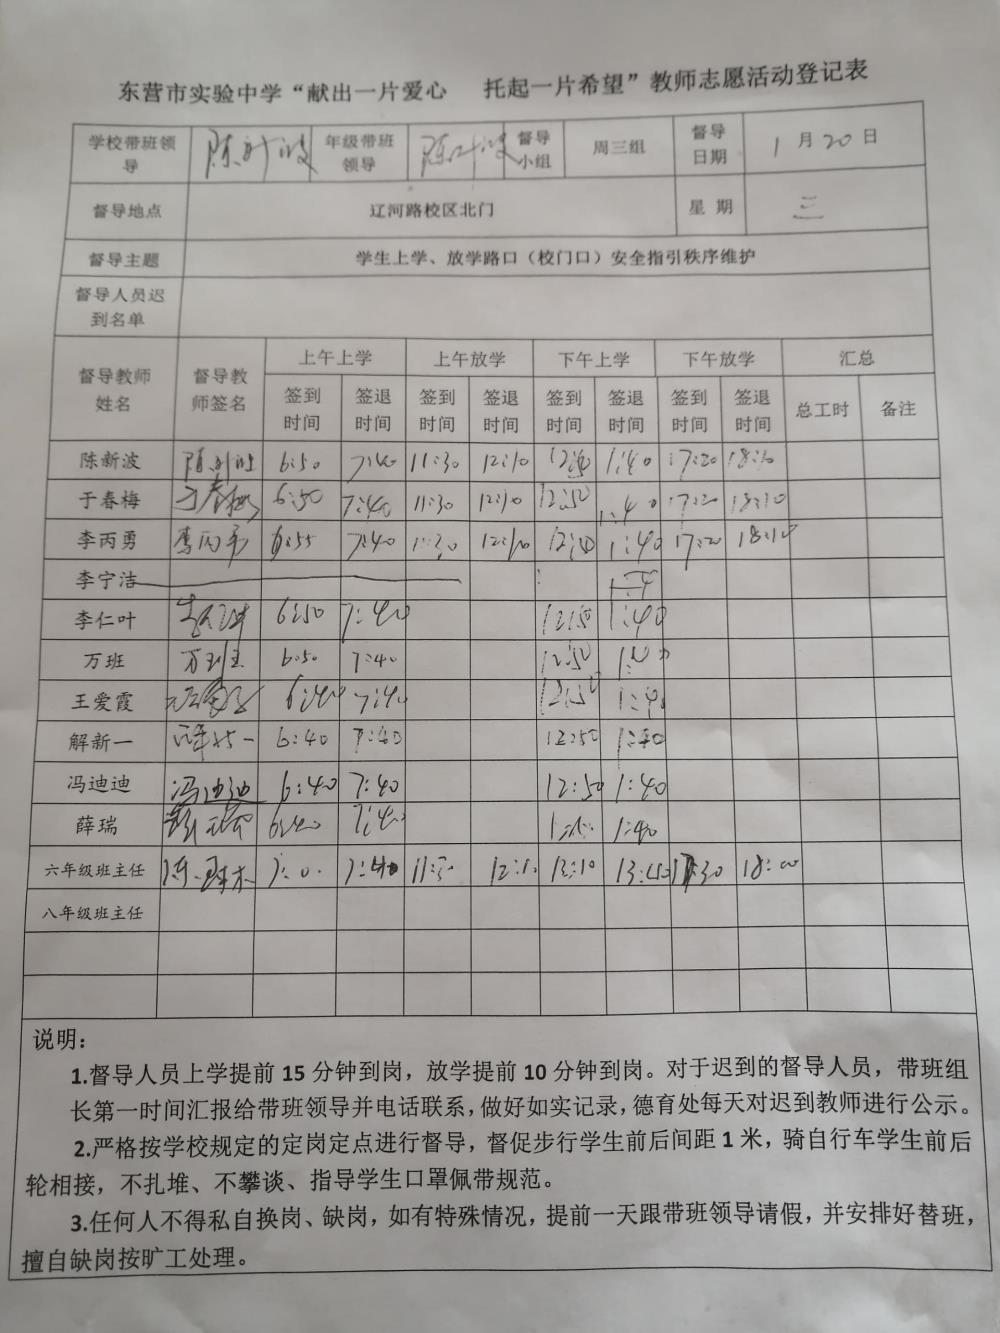 东营市实验中学“献出一片爱心 托起一片希望”教师志愿活动登记表
学校带班领导 陈新波 年级带班领导 陈新波 督导小组 周三组 督导日期 1月20日
督导地点 辽河路校区北门 星期 三
督导主题 学生上学、放学路口（校门口）安全指引秩序维护
督导人员迟到名单
督导教师姓名 督导教师签名 上午上学 上午放学 下午上学 下午放学 汇总
签到时间 签退时间 签到时间 签退时间 签到时间 签退时间 签到时间 签退时间 总工时 备注
陈新波 陈新波 6:50 7:40 11:30 12:10 12:50 1:40 17:20 18:10
于春梅 于春梅 6:50 7:40 11:30 12:10 12:50 1:40 17:20 18:10
李丙勇 李丙勇 6:55 7:40 11:30 12:10 1:40 17:20 18:10
李宁洁
李仁叶 6:50 7:40 12:50 1:40
万班 万班 6:50 7:40 12:50 1:40
王爱霞 王爱霞 6:40 7:40 12:50 1:40
解新一 解新一 6:40 7:40 12:50 1:40
冯迪迪 冯迪迪 6:40 7:40 12:50 1:40
薛瑞 薛瑞 6:40 7:40 1:40
六年级班主任 7:40 11:30 12:10 13:10 13:40 17:30 18:00
八年级班主任
说明：
1.督导人员上学提前 15 分钟到岗，放学提前 10 分钟到岗。对于迟到的督导人员，带班组
长第一时间汇报给带班领导并电话联系，做好如实记录，德育处每天对迟到教师进行公示。
2.严格按学校规定的定岗定点进行督导，督促步行学生前后间距 1 米，骑自行车学生前后
轮相接，不扎堆、不攀谈、指导学生口罩佩带规范。
3.任何人不得私自换岗、缺岗，如有特殊情况，提前一天跟带班领导请假，并安排好替班，
擅自缺岗按旷工处理。